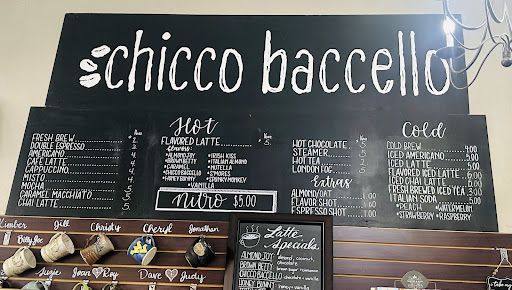 chicco baccello
FRESH BREW
DOUBLE ESPRESSO
AMERICANO
CAFE LATTE
CAPPUCCINO
MISTO
MOCHA
CARAMEL MACCHIATO
CHAI LATTE
Hot
FLAVORED LATTE
flavors
•ALMOND JOY •IRISH KISS
•BROWN BETTY •ITALIAN ALMOND
•CARAMEL •NUTELLA
•CHICCO BACCELLO •S'MORES
•HONEY BUNNY •SPUNKY MONKEY
•VANILLA
NITRO $5.00
HOT CHOCOLATE
STEAMER
HOT TEA
LONDON FOG
Extras
ALMOND/OAT 1.00
FLAVOR SHOT 1.00
ESPRESSO SHOT 1.00
Cold
COLD BREW 4.00
ICED AMERICANO
ICED LATTE
FLAVORED ICED LATTE
ICED CHAI LATTE
FRESH BREWED ICED TEA
ITALIAN SODA
•PEACH •WATERMELON
•STRAWBERRY •RASPBERRY
Kimber Jill Christy Cheryl Jonathan
Billy Joe
Suzie Joan Roy Dave Judy
Latte
Specials
ALMOND JOY almond, coconut,
chocolate
BROWN BETTY brown sugar cinnamon
CHICCO BACCELLO chocolate + vanilla
HONEY BUNNY honey + vanilla